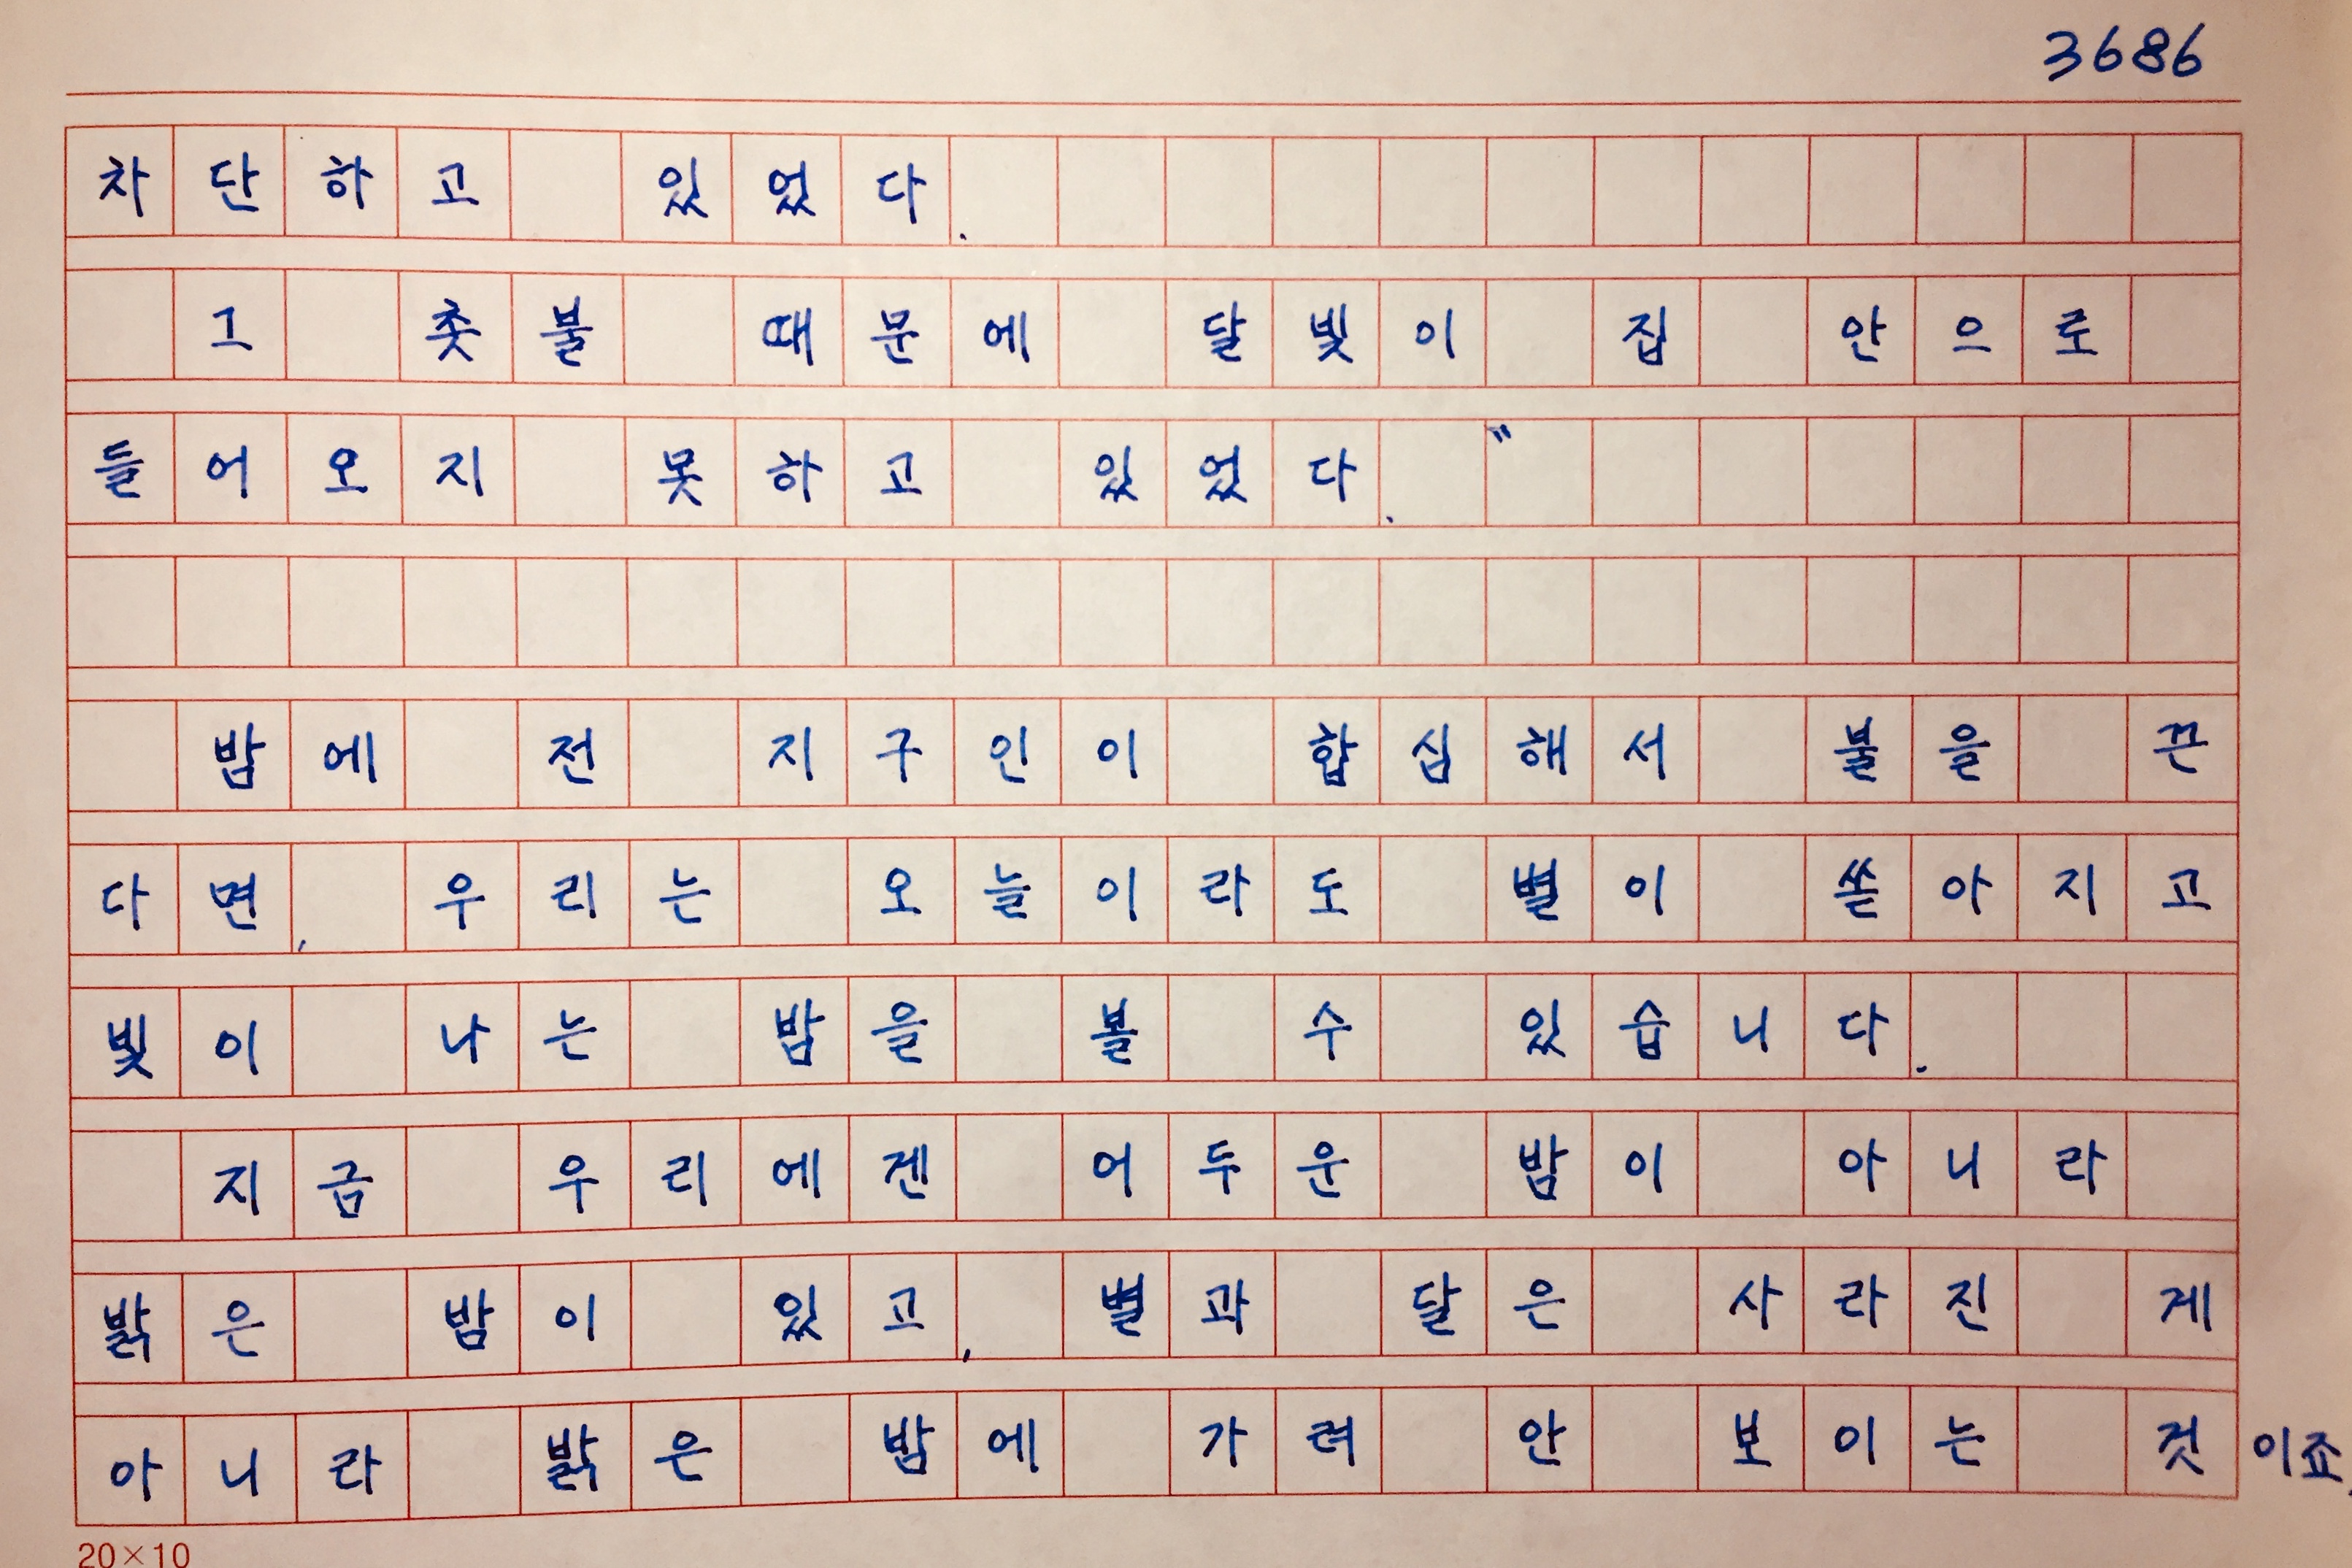 3686
차단하고 있었다.
그 촛불 때문에 달빛이 집 안으로
들어오지 못하고 있었다. "
밤에 전 지구인이 합심해서 불을 끈
다면, 우리는 오늘이라도 별이 쏟아지고
빛이 나는 밤을 볼 수 있습니다.
지금 우리에겐 어두운 밤이 아니라
밝은 밤이 있고, 별과 달은 사라진 게
아니라 밝은 밤에 가려 안 보이는 것이죠.
20×10